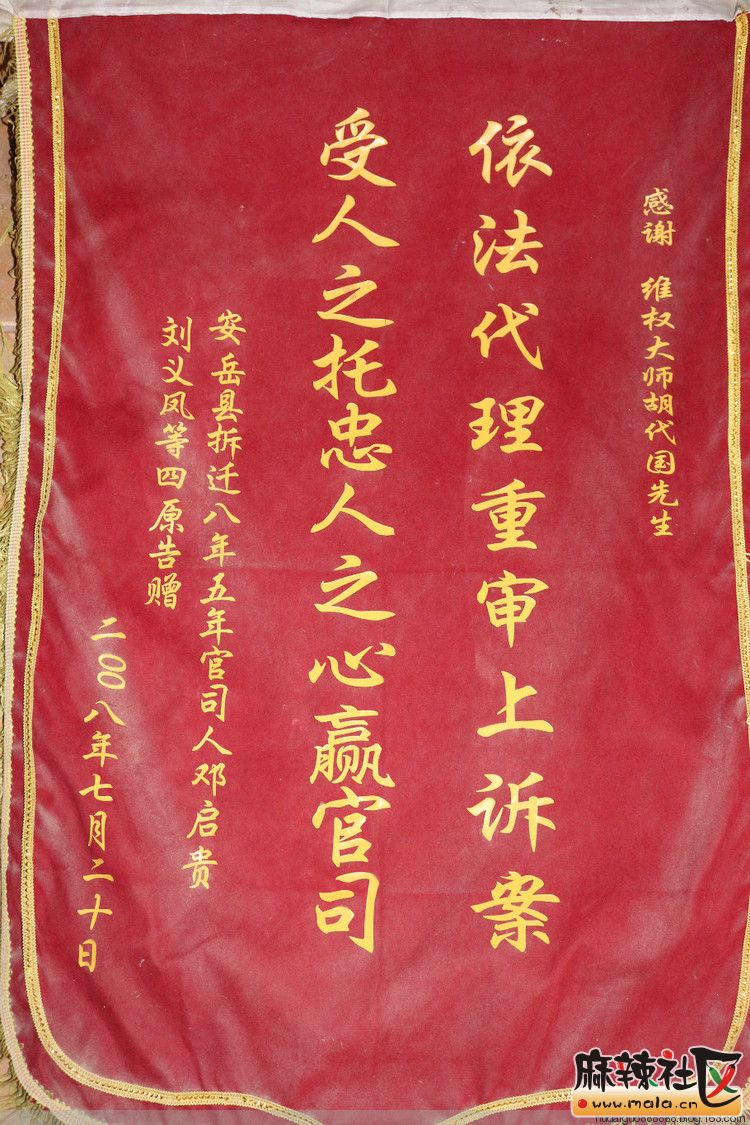 感谢 维权大师胡代国先生
依法代理重审上诉案
受人之托忠人之心赢官司
安岳县拆迁八年五年官司人邓启贵
刘义凤等四原告赠
二00八年七月二十日
麻辣社区
www.mala.cn